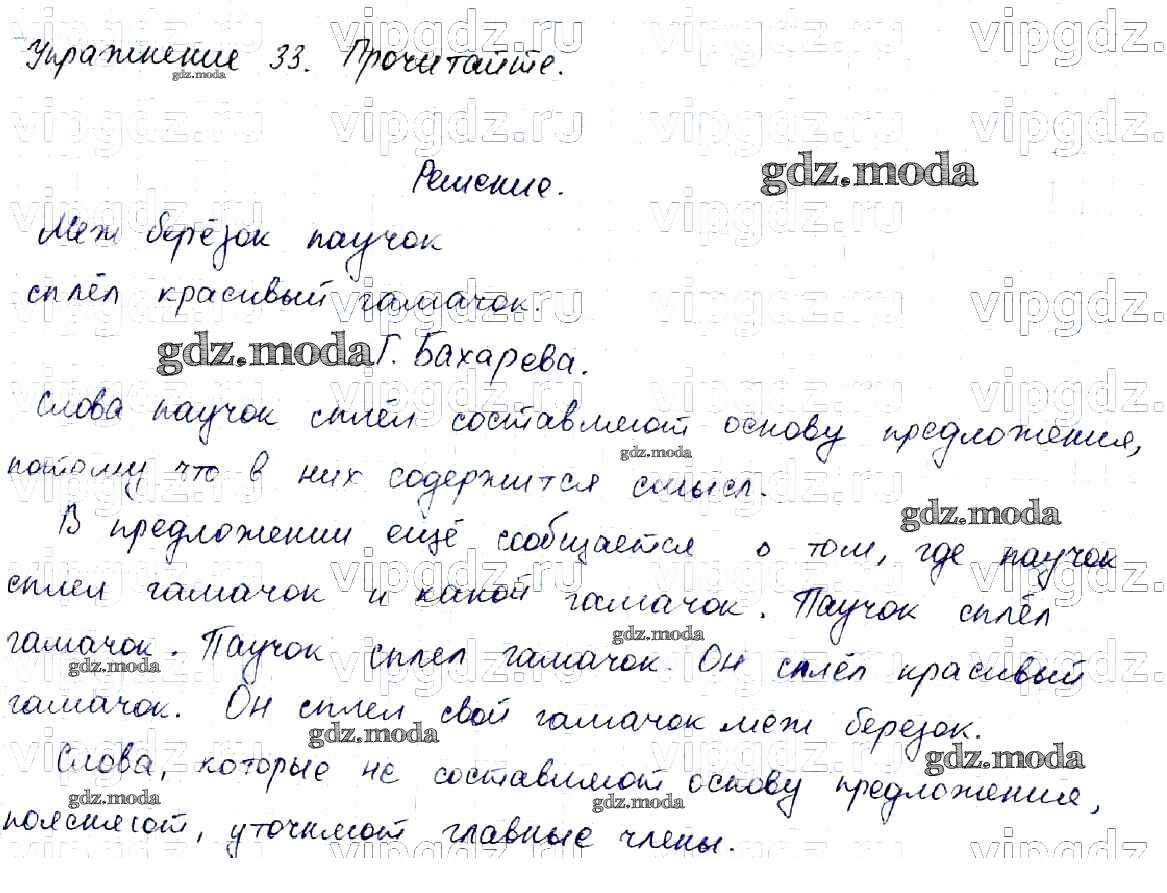 Упражнение 33. Прочитайте.
Решение.
Меж берёзок паучок
сплёл красивый гамачок.
Г. Бахарева.
Слова паучок сплёл составляют основу предложения,
потому что в них содержится смысл.
В предложении ещё сообщается о том, где паучок
сплел гамачок и какой гамачок. Паучок сплёл
гамачок. Паучок сплел гамачок. Он сплёл красивый
гамачок. Он сплел свой гамачок меж березок.
Слова, которые не составляют основу предложения,
поясняют, уточняют главные члены.
vipgdz.ru
gdz.moda